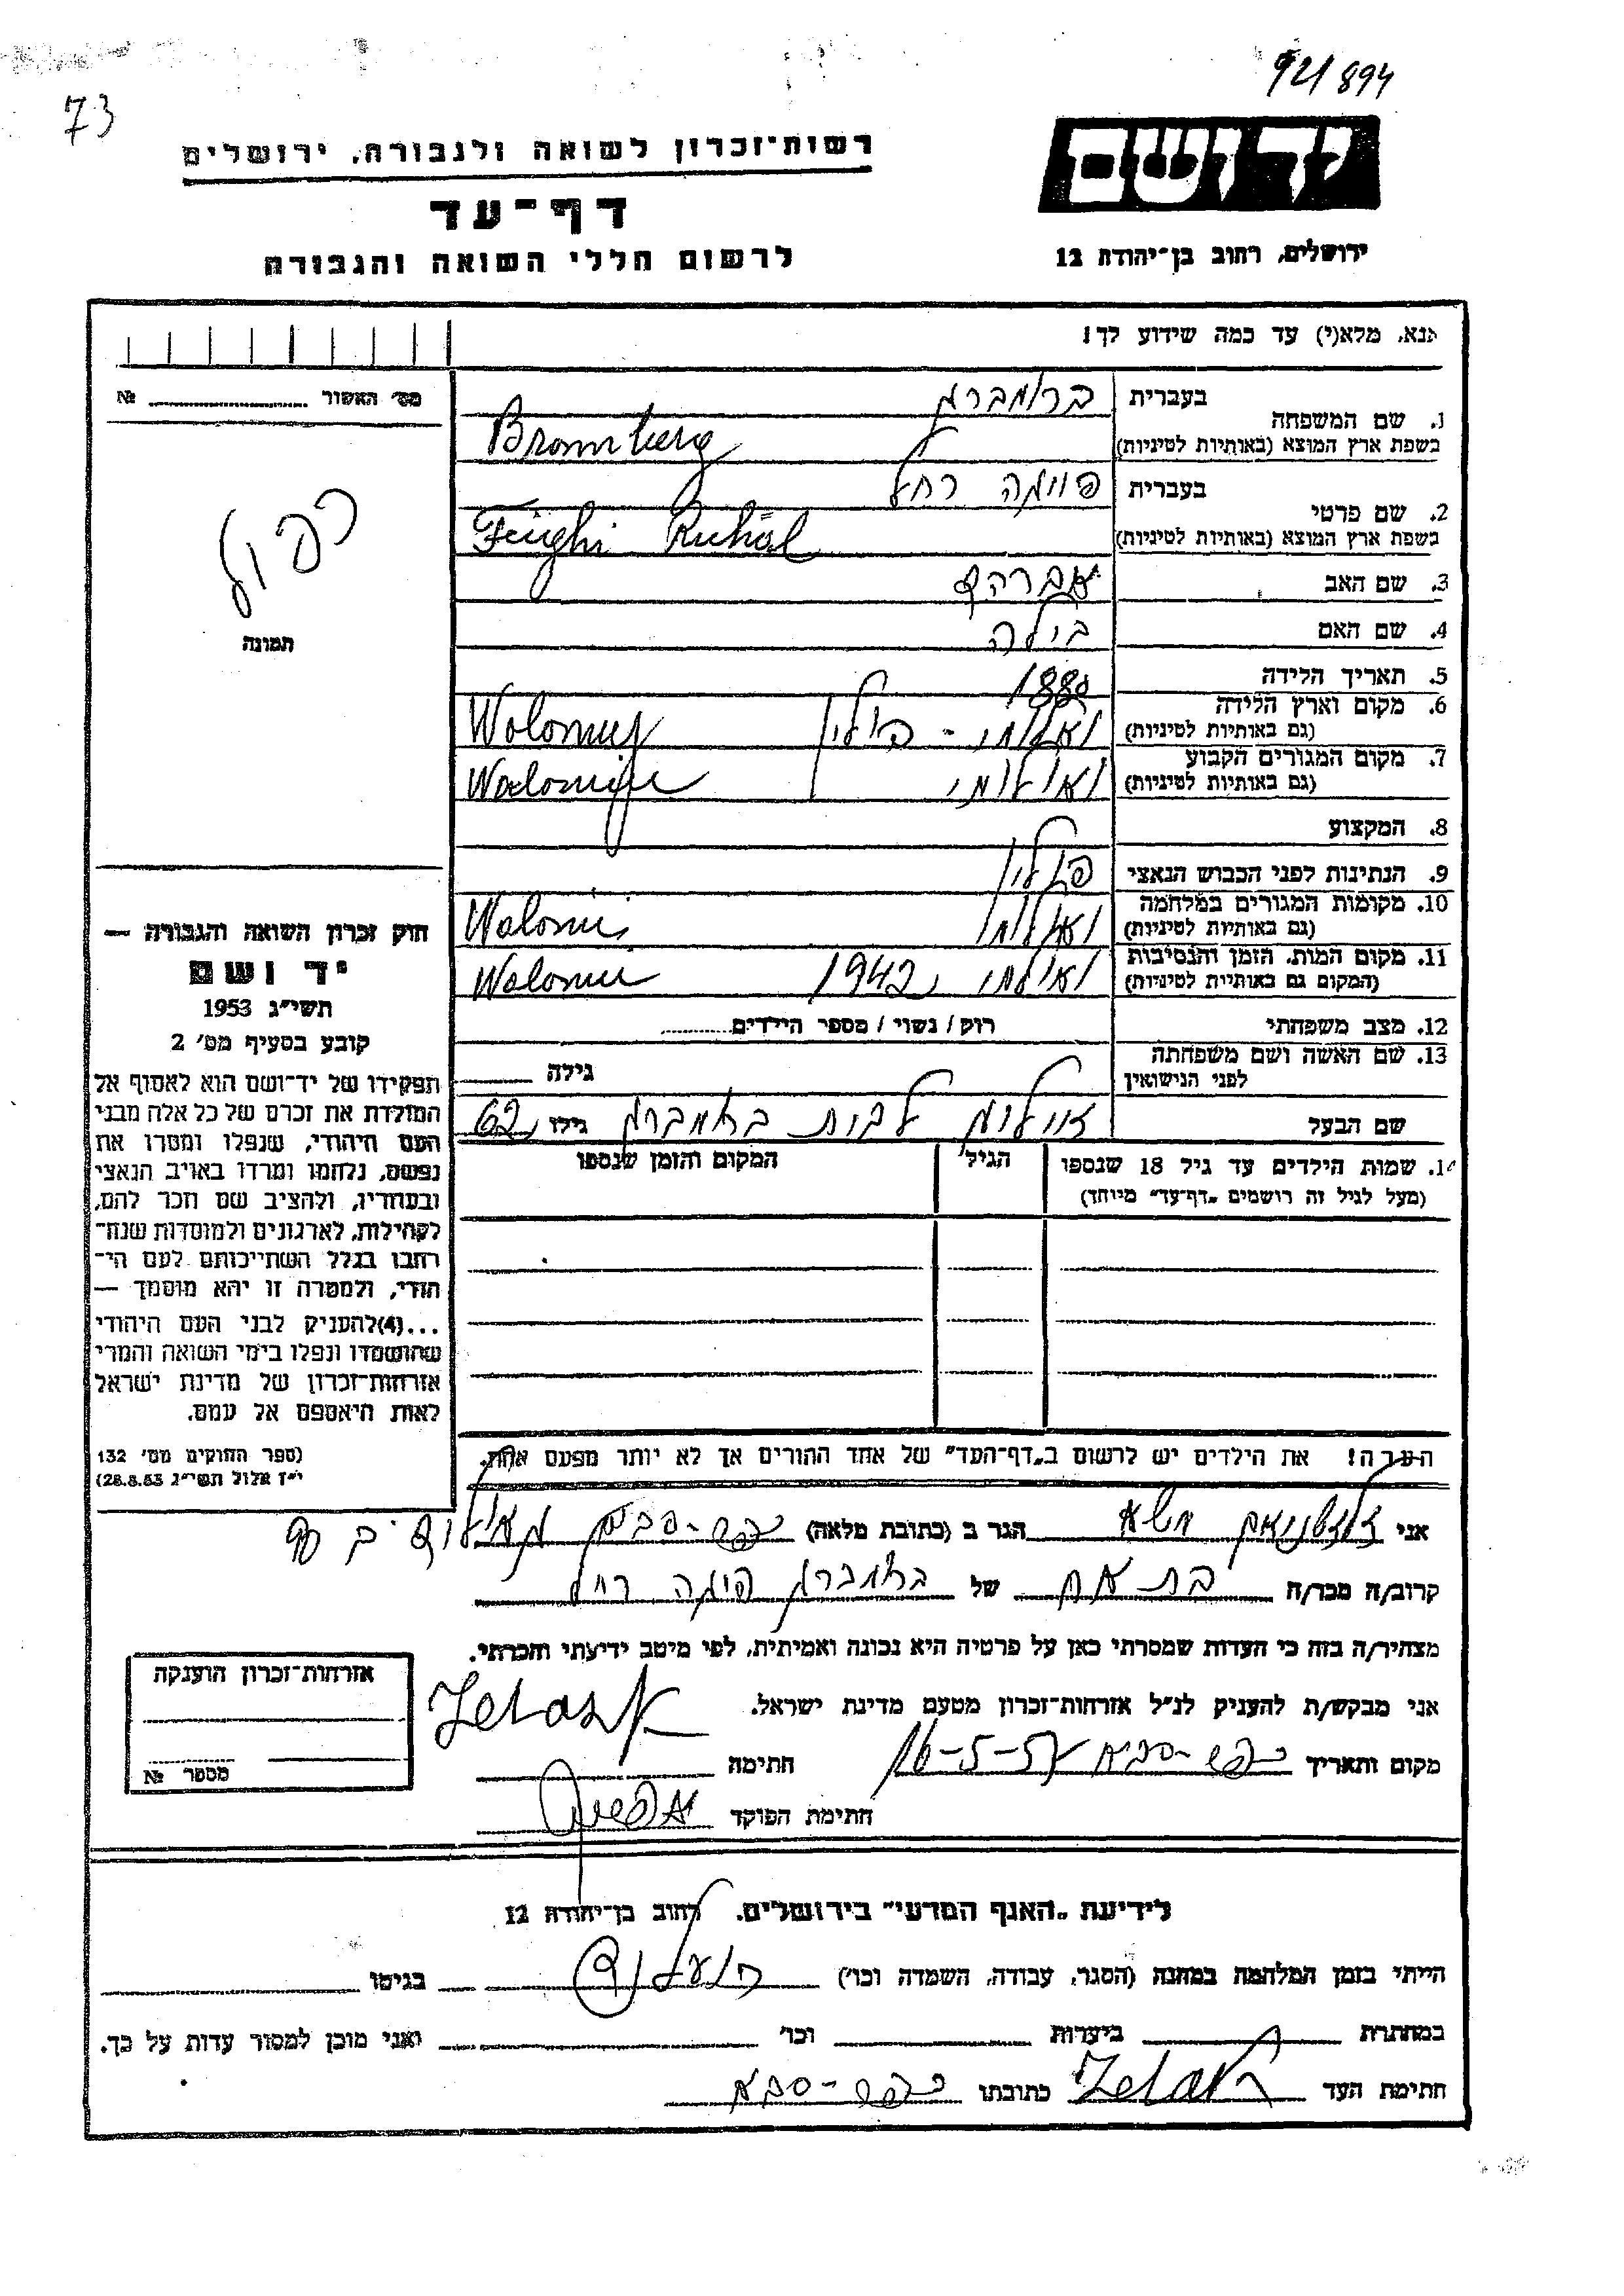 73
921894
רשות־זכרון לשואה ולגבורה, ירושלים
יד ושם
דף־עד
לרשום חללי השואה והגבורה
ירושלים, רחוב בן־יהודה 12
אנא, מלא(י) עד כמה שידוע לך!
מס׳ האשור № 
1. שם המשפחה
בעברית ברומברג
בשפת ארץ המוצא (באותיות לטיניות) Bromberg
2. שם פרטי
בעברית פויגה רחל
בשפת ארץ המוצא (באותיות לטיניות) Feighi Ruchal
3. שם האב אברהם
4. שם האם ביילה
5. תאריך הלידה 1880
6. מקום וארץ הלידה
(גם באותיות לטיניות) Wolomij פולין
7. מקום המגורים הקבוע
(גם באותיות לטיניות)
8. המקצוע
9. הנתינות לפני הכבוש הנאצי פולין
10. מקומות המגורים במלחמה
(גם באותיות לטיניות) Wolomi
11. מקום המות, הזמן והנסיבות
(המקום גם באותיות לטיניות) 1942 Wolomi
12. מצב משפחתי רוק / נשוי / מספר הילדים
13. שם האשה ושם משפחתה
לפני הנישואין גילה
שם הבעל ברומברג גילו 62
14. שמות הילדים עד גיל 18 שנספו
(מעל לגיל זה רושמים „דף־עד״ מיוחד)
הגיל
המקום והזמן שנספו
הערה! את הילדים יש לרשום ב„דף־העד״ של אחד ההורים אך לא יותר מפעם אחת.
כפול
תמונה
חוק זכרון השואה והגבורה —
יד ושם
תשי״ג 1953
קובע בסעיף מס׳ 2
תפקידו של יד־ושם הוא לאסוף אל
המולדת את זכרם של כל אלה מבני
העם היהודי, שנפלו ומסרו את
נפשם, נלחמו ומרדו באויב הנאצי
ובעוזריו, ולהציב שם וזכר להם,
לקהילות, לארגונים ולמוסדות שנח־
רבו בגלל השתייכותם לעם הי־
הודי, ולמטרה זו יהא מוסמך —
...(4)להעניק לבני העם היהודי
שהושמדו ונפלו בימי השואה והמרי
אזרחות־זכרון של מדינת ישראל
לאות היאספם אל עמם.
(ספר החוקים מס׳ 132
י״ז אלול תשי״ג 28.8.53)
אני הגר ב (כתובת מלאה) כפר-סבא
קרוב/ה מכר/ה בת אח של ברומברג פויגה רחל
מצהיר/ה בזה כי העדות שמסרתי כאן על פרטיה היא נכונה ואמיתית, לפי מיטב ידיעתי והכרתי.
אני מבקש/ת להעניק לנ״ל אזרחות־זכרון מטעם מדינת ישראל.
מקום ותאריך כפר-סבא 16-5-57 חתימה
חתימת הפוקד
אזרחות־זכרון הוענקה
מספר №
לידיעת „האגף המדעי״ בירושלים, רחוב בן־יהודה 12
הייתי בזמן המלחמה במחנה (הסגר, עבודה, השמדה וכו׳) בגיטו
במחתרת ביערות וכו׳ ואני מוכן למסור עדות על כך.
חתימת העד כתובתו כפר-סבא